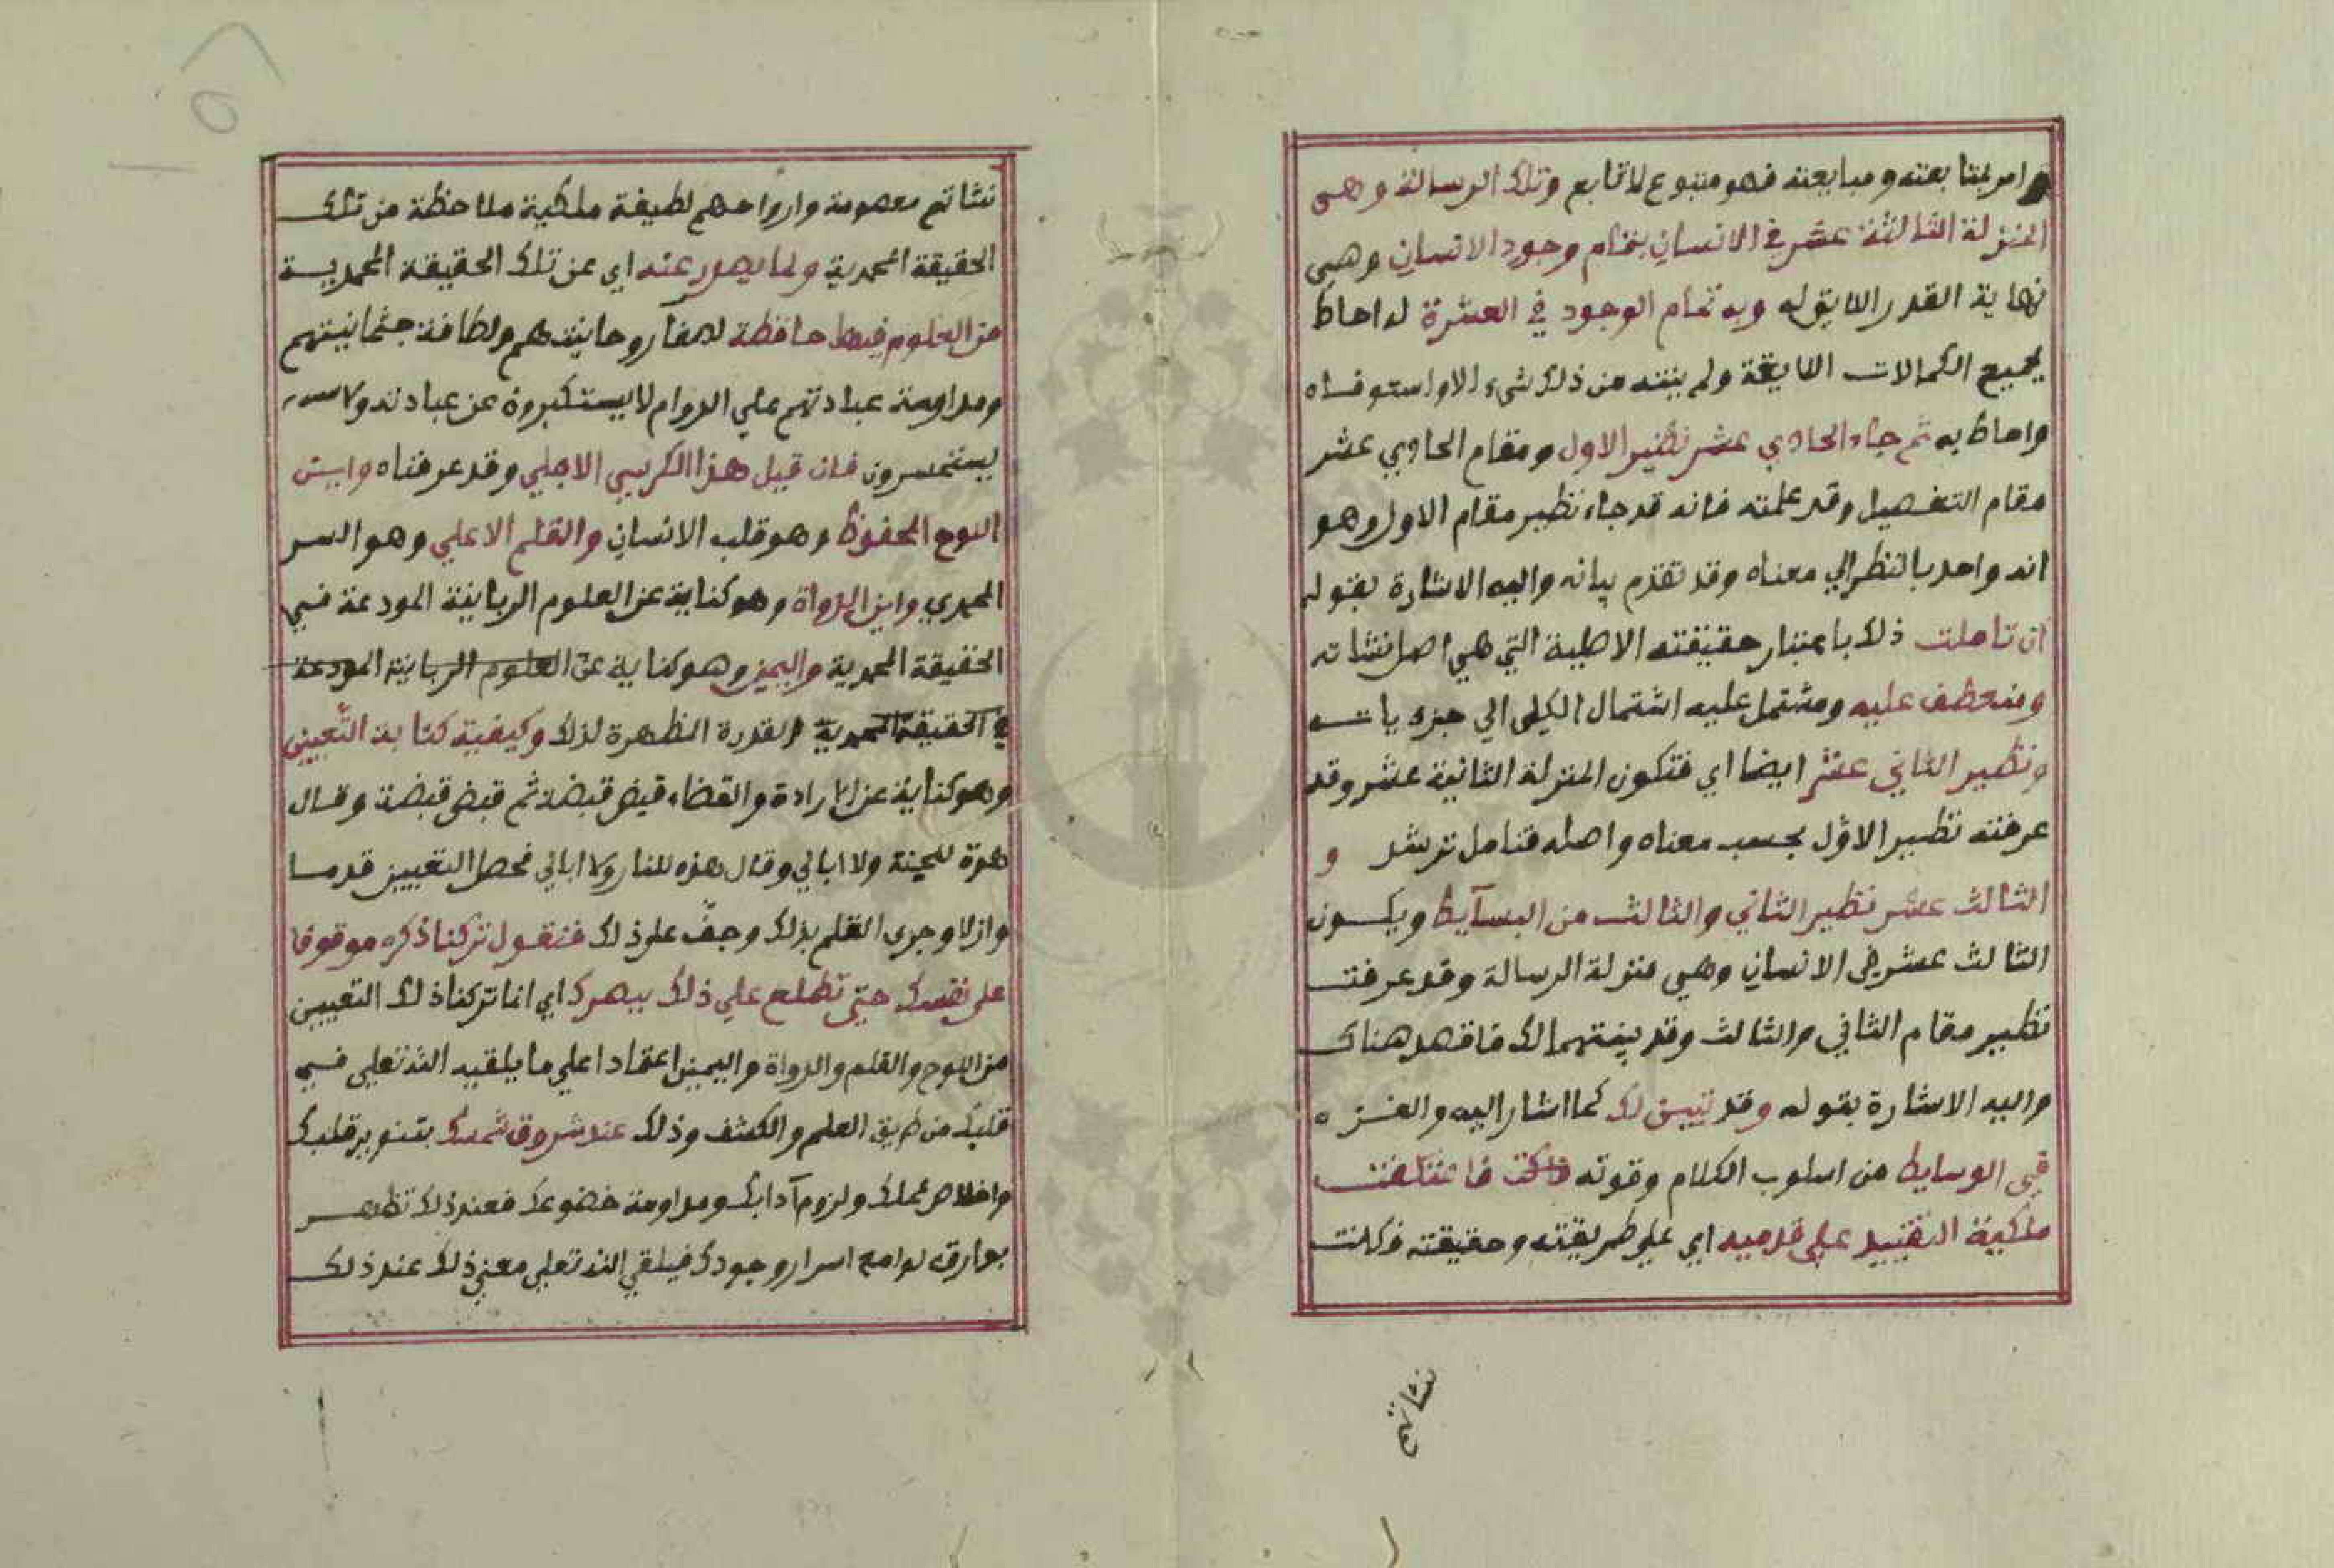 وامر بمتابعته ومبايعته فهو متبوع لا تابع وتلك الرسالة وهي
المنزلة الثالثة عشر في الانسان بتمام وجود الانسان وهي
نهاية القدر اللايق له وبه تمام الوجود في العشرة له احاط
بجميع الكمالات اللايقة ولم يبته من ذلك شيء الا واستوفاه
واحاط به ثم جاء الحادي عشر نظير الاول ومقام الحادي عشر
مقام التفصيل وقد علمته فانه قد جاء نظير مقام الاول وهو
انه واحد بالنظر الي معناه وقد تقدم بيانه واليه الاشارة بقوله
ان تاملت ذلك باعتبار حقيقته الاصلية التي هي اصل نشاته
ومنعطف عليه ومشتمل عليه اشتمال الكلي الي جزء يات
ونظير الثاني عشر ايضا اي فتكون المنزلة الثانية عشر وقد
عرفته نظير الاول بحسب معناه واصله فتامل ترشد و
الثالث عشر نظير الثاني والثالث من البسآيط ويكون
الثالث عشر في الانسان وهي منزلة الرسالة وقد عرفت
نظير مقام الثاني والثالث وقد بينتهما لك فاقهد هناك
واليه الاشارة بقوله وقد تبين لك كما اشار اليه والعزه
في الوسايط من اسلوب الكلام وقوته فاعتكفت
ملكية التقييد علي قدميه اي علي طريقته وحقيقته فكانت
نشاتهم
نشاتهم معصومة وارواحهم لطيفة ملكية ملاحظة من تلك
الحقيقة المحمدية ولما يصدر عنه اي عن تلك الحقيقة المحمدية
من العلوم فيها حافظة لصفا روحانيتهم ولطافة جثمانيتهم
ومداومة عبادتهم علي الدوام لا يستكبرون عن عبادته ولا
يستحسرون فان قيل هذا الكرسي الاجلي وقد عرفناه واين
اللوح المحفوظ وهو قلب الانسان والقلم الاعلي وهو السر
المحمدي واين الدواة وهو كناية عن العلوم الربانية المودعة في
الحقيقة المحمدية واليمين وهو كناية عن العلوم الربانية المودعة
في الحقيقة المحمدية القدرة الظهرة لذلك وكيفية كتابة التعيين
وهو كناية عن الارادة والقضاء قبض قبضة ثم قبض قبضة وقال
هوة للجنة ولا ابالي وقال هذه للنار ولا ابالي فحصل التعيين قدما
وازلا وجرى القلم بذلك وجف علي ذلك فنقول تركنا ذكره موقوفا
على نفسك حتي تطلع علي ذلك ببصرك اي انما تركنا ذلك التعيين
من اللوح والقلم والدواة واليمين اعتمادا علي ما يلقيه الله تعلي في
قلبك من طريق العلم والكشف وذلك عند شروق شمسك بتنوير قلبك
واخلاص عملك ولزوم آدابك ومداومة خضوعك فعند ذلك تظهر
بوارق لوامع اسرار وجودك فيلقي الله تعلي معني ذلك عند ذلك